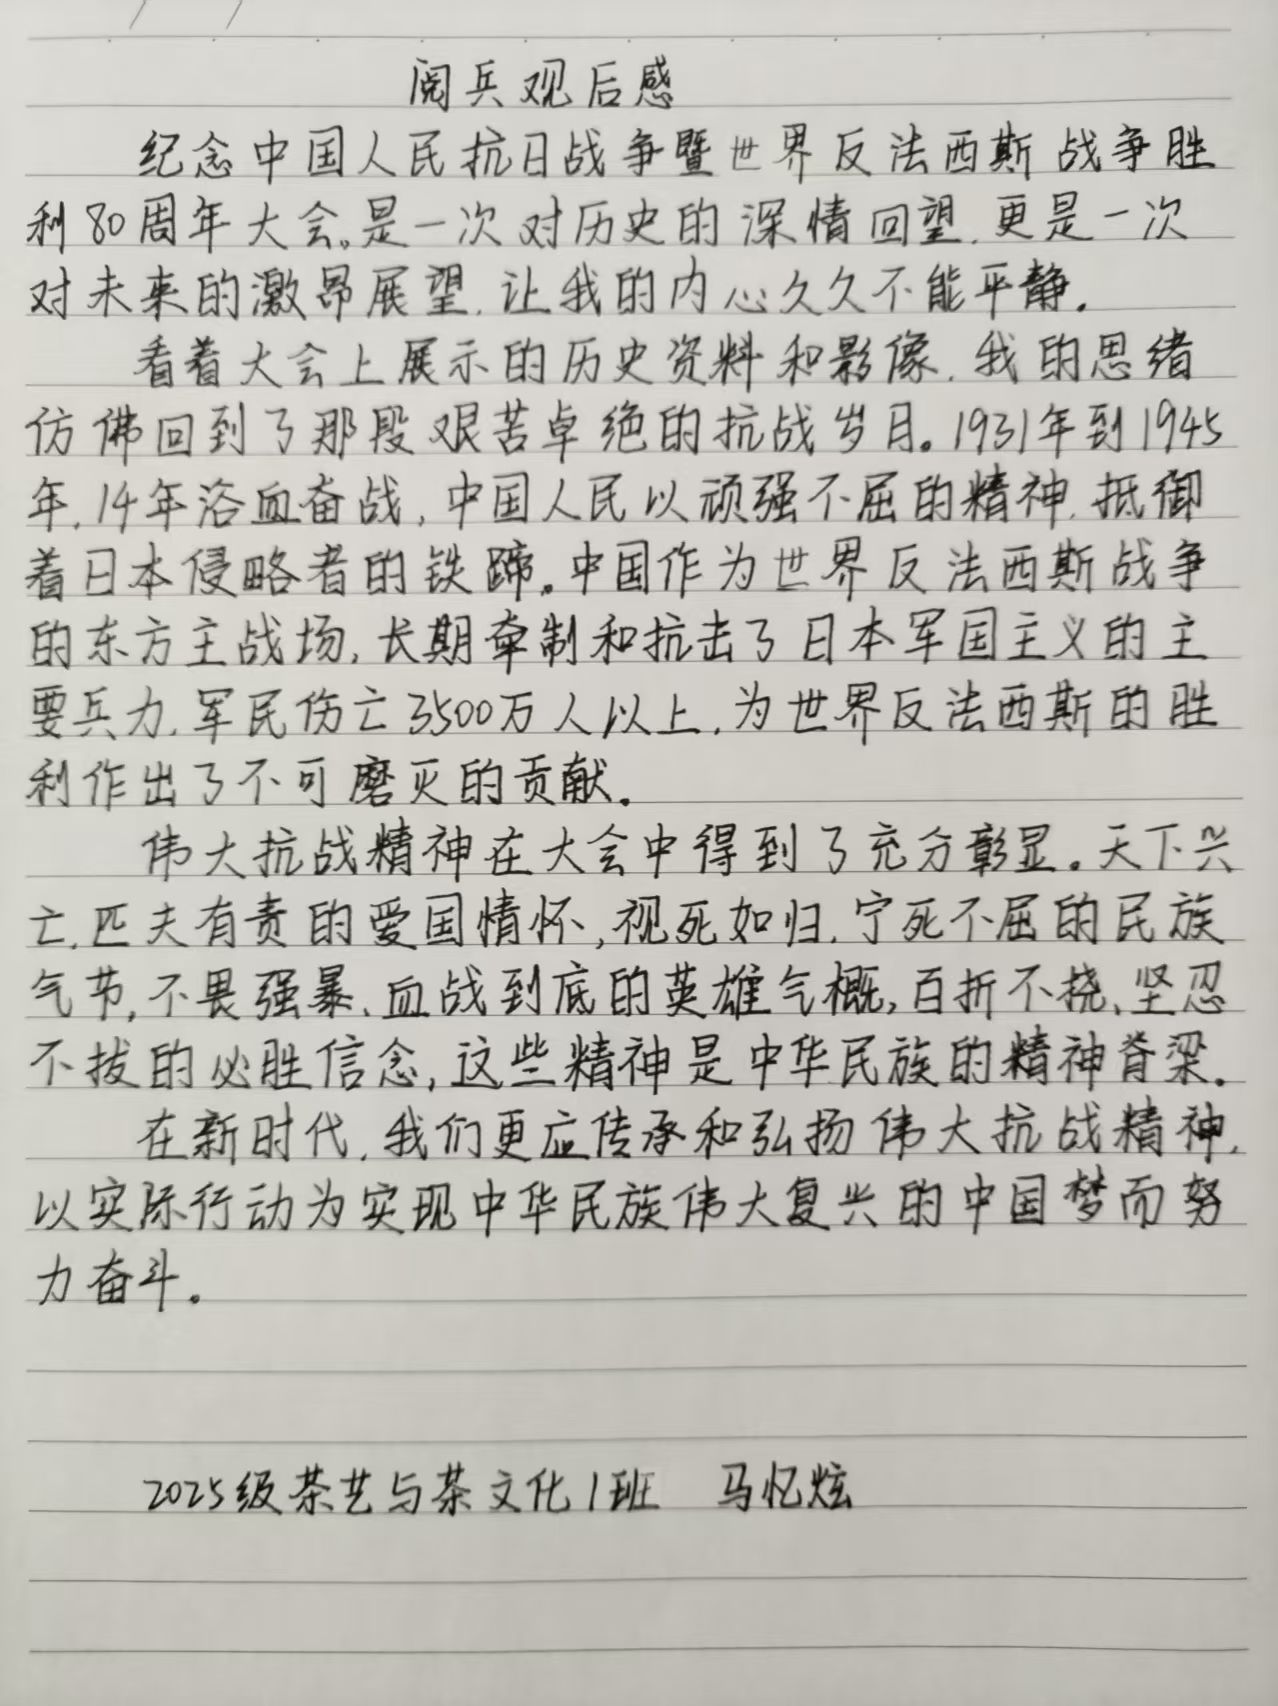 阅兵观后感
纪念中国人民抗日战争暨世界反法西斯战争胜
利80周年大会。是一次对历史的深情回望，更是一次
对未来的激昂展望，让我的内心久久不能平静。
看着大会上展示的历史资料和影像，我的思绪
仿佛回到了那段艰苦卓绝的抗战岁月。1931年到1945
年，14年浴血奋战，中国人民以顽强不屈的精神，抵御
着日本侵略者的铁蹄。中国作为世界反法西斯战争
的东方主战场，长期牵制和抗击了日本军国主义的主
要兵力，军民伤亡3500万人以上，为世界反法西斯的胜
利作出了不可磨灭的贡献。
伟大抗战精神在大会中得到了充分彰显。天下兴
亡，匹夫有责的爱国情怀，视死如归，宁死不屈的民族
气节，不畏强暴、血战到底的英雄气概，百折不挠、坚忍
不拔的必胜信念，这些精神是中华民族的精神脊梁。
在新时代，我们更应传承和弘扬伟大抗战精神，
以实际行动为实现中华民族伟大复兴的中国梦而努
力奋斗。
2025级茶艺与茶文化1班 马忆炫